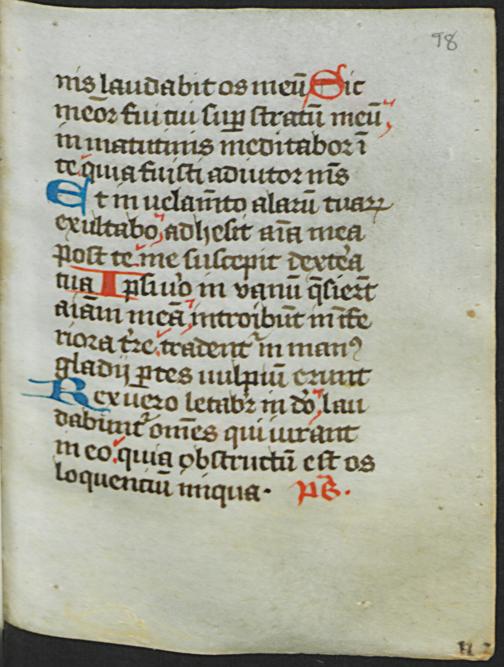 98
nis laudabit os meū Sic
meōr fui tui sup̲ stratū meū
in matutinis meditabor ī
te quia fuisti adiutor m̄s
Et in uelam̄to alarū tuaꝝ
exultabo adhesit aīa mea
post te me suscepit dext̓a
tua Ipsi u̓o in vanū q̄sier̄t
aīam meā introibūt in īfe
riora t̓re tradent᷑ in manꝰ
gladij ꝑtes uulpiū erunt
Rex uero letabr̄ in dō lau
dabunt᷑ om̄es qui iurant
in eo quia obstructū est os
loquentiū iniqua. ps̄.